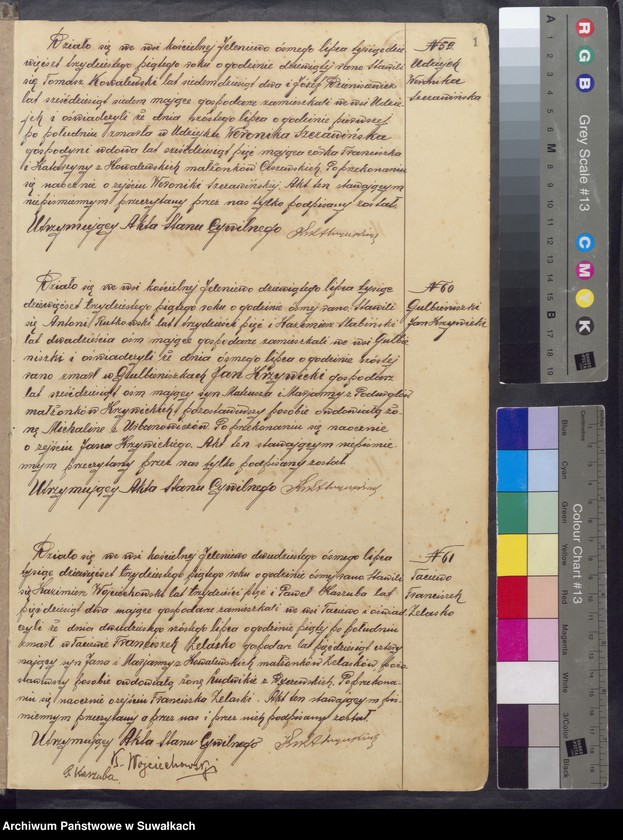 1
Działo się we wsi kościelnej Jeleniewo ósmego lipca tysiąc dzie
więćset trzydziestego piątego roku o godzinie dziewiątej rano. Stawili
się Tomasz Kowalewski lat siedemdziesiąt dwa i Józef
lat sześćdziesiąt siedem mające gospodarze zamieszkali we wsi Udzie
jek i oświadczyli że dnia szóstego lipca o godzinie pierwszej
po południu zmarła w Udziejku Weronika Szczawińska
gospodyni wdowa lat sześćdziesiąt pięć mająca córka Franciszka
i Katarzyny z Kowalewskich małżonków Po przekonaniu
się naocznie o zejściu Weroniki Szczawińskiej. Akt ten stawającym
niepiśmiennym przeczytany przez nas tylko podpisany został.
Utrzymujący Akta Stanu Cywilnego
N 59
Udziejek
Weronika
Szczawińska
Działo się we wsi kościelnej Jeleniewo dziewiątego lipca tysiąc
dziewięćset trzydziestego piątego roku o godzinie ósmej rano. Stawili
się Antoni Rutkowski lat trzydzieści pięć i Kazimierz Słabiński
lat dwadzieścia ośm mające gospodarze zamieszkali we wsi Gulbie
niszki i oświadczyli że dnia ósmego lipca o godzinie szóstej
rano zmarł w Gulbieniszkach Jan Krzywicki gospodarz
lat sześćdziesiąt ośm mający syn Mateusza i Maryanny z
małżonków Krzywickich pozostawiwszy po sobie owdowiałą żo
nę Michalinę z Urbanowiczów Po przekonaniu się naocznie
o zejściu Jana Krzywickiego. Akt ten stawającym niepiśmie
nnym przeczytany przez nas tylko podpisany został
Utrzymujący Akta Stanu Cywilnego
N 60
Gulbieniszki
Jan Krzywicki
Działo się we wsi kościelnej Jeleniewo dwudziestego ósmego lipca
tysiąc dziewięćset trzydziestego piątego roku o godzinie ósmej rano stawili
się Kazimierz Wojciechowski lat trzydzieści pięć i Paweł Kaszuba lat
pięćdziesiąt dwa mające gospodarze zamieszkali we wsi Taciewo i oświad
czyli że dnia dwudziestego szóstego lipca o godzinie piątej po południu
zmarł w Taciewie Franciszek Żelasko gospodarz lat pięćdziesiąt cztery
mający syn Jana i Maryanny z Kowalewskich małżonków Żelasków pozo
stawiwszy po sobie owdowiałą żonę z Po przekona
niu się naocznie o zejściu Franciszka Żelaski. Akt ten stawającym piś
miennym przeczytany przez nas i przez nich podpisany został
Utrzymujący Akta Stanu Cywilnego
K. Wojciechowski
P. Kaszuba
N 61
Taciewo
Franciszek
Żelasko
R
G
B
Grey Scale #13
C
M
Y
K
A
1
2
3
4
5
6
M
8
9
10
11
12
13
14
15
B
17
18
19
Colour Chart #13
Centimetres
Blue
Cyan
Green
Yellow
Red
Magenta
White
3/Color
Black
Archiwum Państwowe w Suwałkach